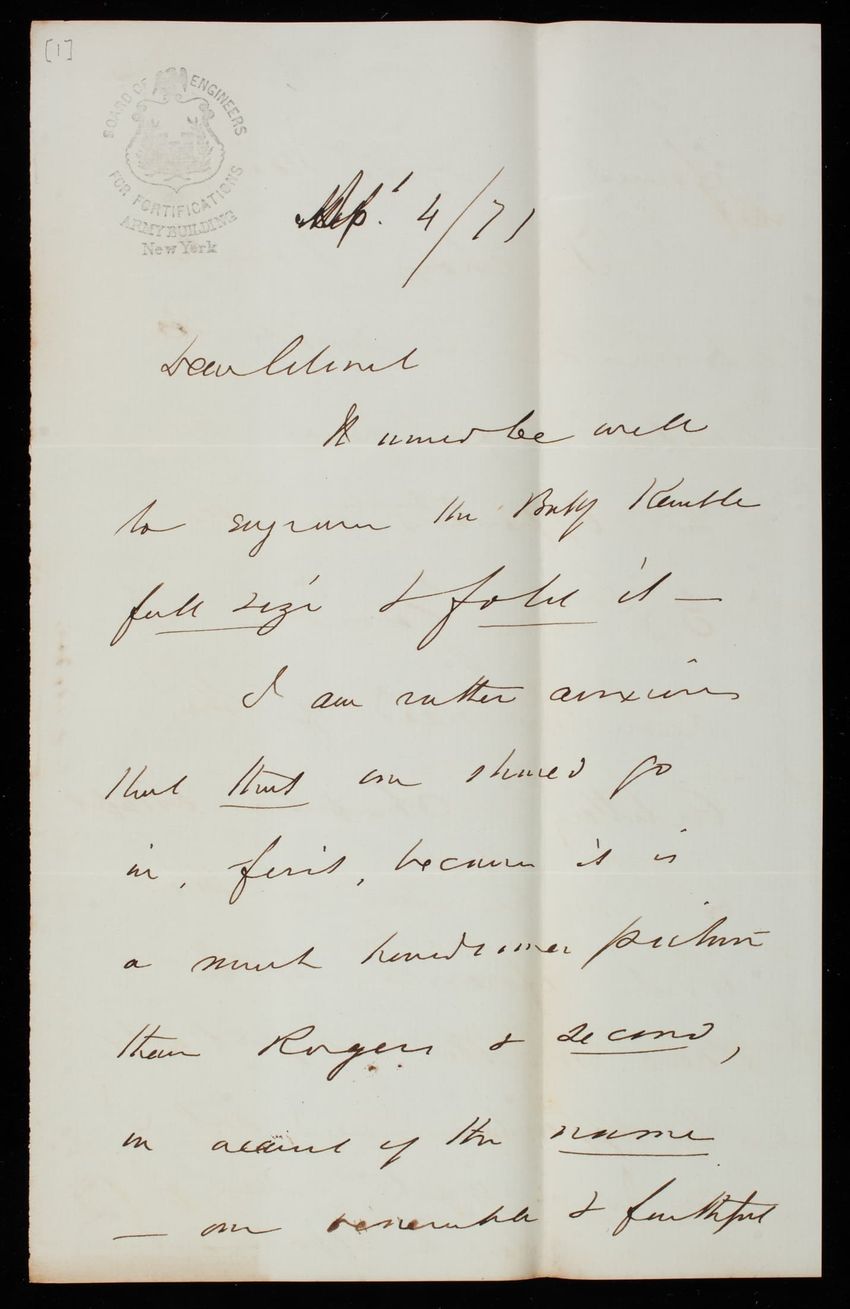 [1]
BOARD OF ENGINEERS
FOR FORTIFICATIONS
ARMY BUILDING
New York
4/71
Dear Colonel
It would be well
to engrave the Batty Kemble
full size & fold it —
I am rather anxious
that that one should go
in, first, because it is
a much handsomer picture
than Rogers & second,
on account of the name
— our venerable & faithful